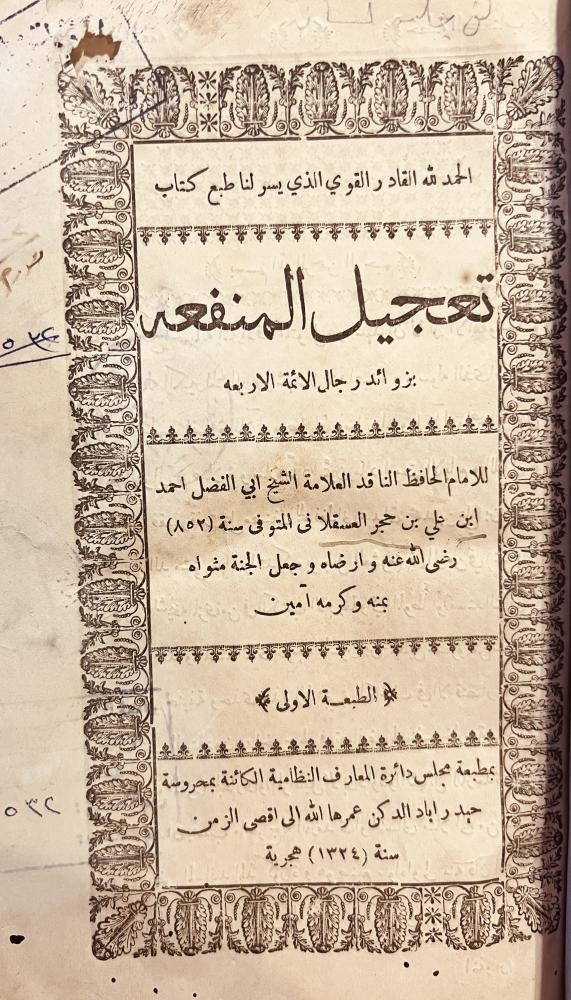 الحمد لله القادر القوي الذي يسر لنا طبع كتاب
تعجيل المنفعه
بزوائد رجال الائمة الاربعه
للامام الحافظ الناقد العلامة الشيخ ابي الفضل احمد
ابن علي بن حجر العسقلانى المتوفى سنة (٨٥٢)
رضى الله عنه وارضاه وجعل الجنة مثواه
بمنه وكرمه آمين
الطبعة الاولى
بمطبعة مجلس دائرة المعارف النظامية الكائنة بمحروسة
حيدر اباد الدكن عمرها الله الى اقصى الزمن
سنة (١٣٢٤) هجرية